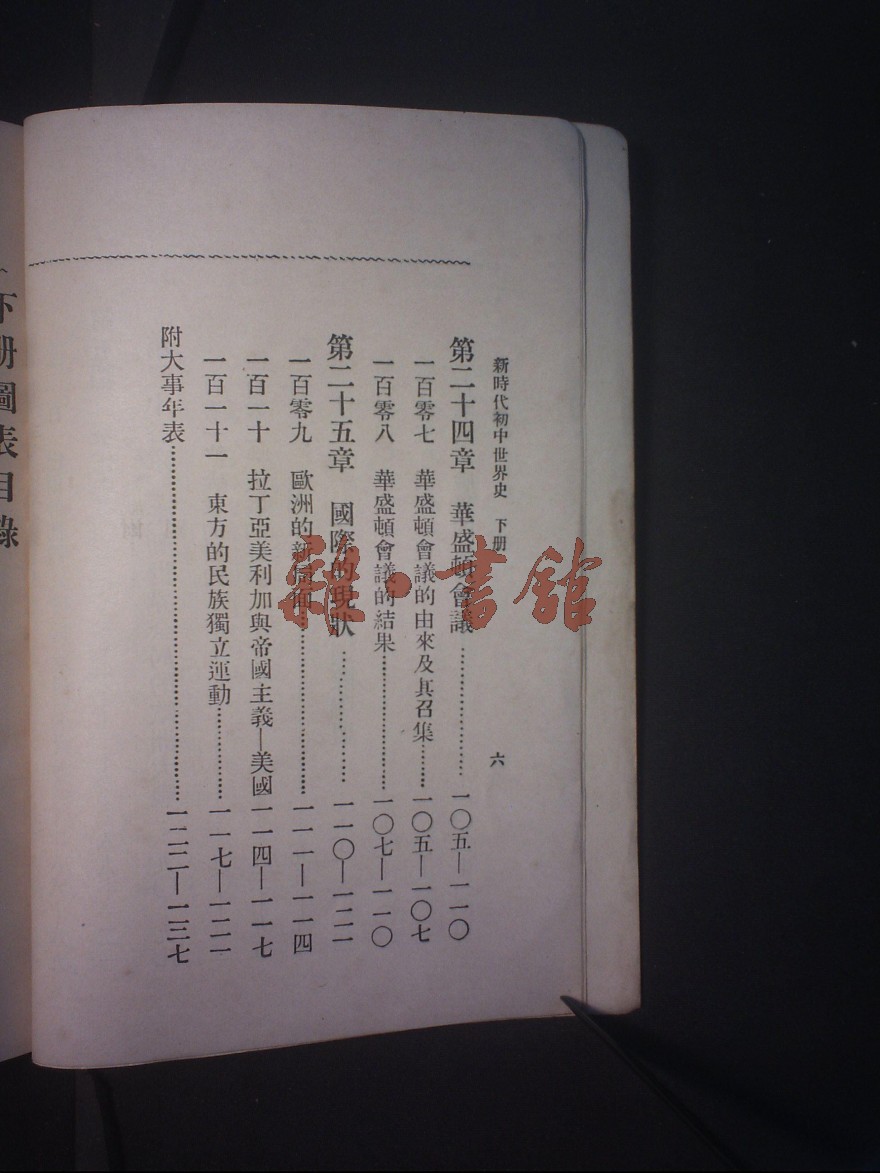 新時代初中世界史 下册 六
第二十四章 華盛頓會議……………一〇五—一一〇
一百零七 華盛頓會議的由來及其召集……一〇五—一〇七
一百零八 華盛頓會議的結果……………一〇七—一一〇
第二十五章 國際的現狀……………一一〇—一二一
一百零九 歐洲的新局面……………一一一—一一四
一百一十 拉丁亞美利加與帝國主義—美國一一四—一一七
一百一十一 東方的民族獨立運動…………一一七—一二一
附大事年表……………………一二二—一三七
下册圖表目錄
雜·書館